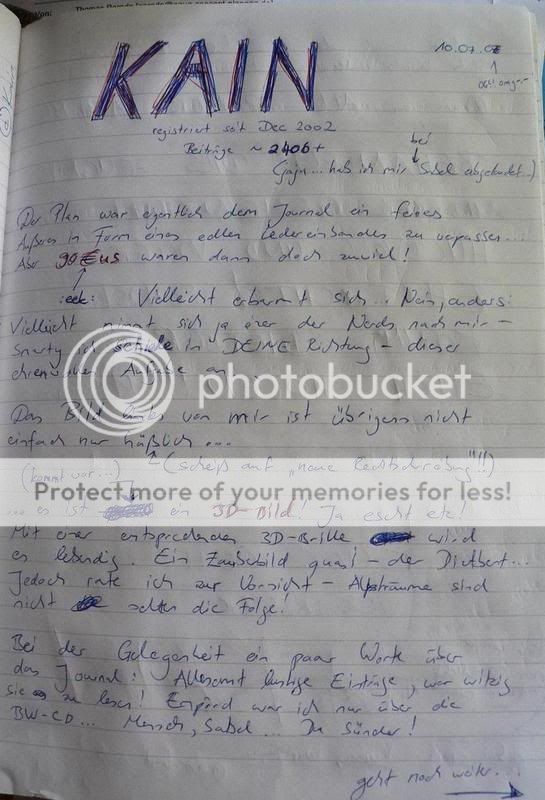 Von:
KAIN
10.07.07
registriert seit Dec 2002
Beiträge ~ 2406+
bei
(jaja... hab ich mir Sabel abgeguckt...)
Der Plan war eigentlich dem Journal ein feines
Äußeres in Form eines edlen Ledereinbandes zu verpassen...
Aber 90 €us waren dann doch zuviel!
:eek: Vielleicht erbarmt sich... Nein, anders:
Vielleicht nimmt sich ja einer der Nerds nach mir –
ich schiele in DEINE Richtung – dieser
Aufgabe an
photobucket
Das Bild links von mir ist übrigens nicht
einfach nur häßlich...
(kommt vor...) (scheiß auf "neue Rechtschreibung"!!)
Protect more of your memories for less!
... es ist ein 3D-Bild! Ja escht ete!
Mit einer entsprechenden 3D-Brille wird
es lebendig. Ein Zauberbild quasi – der
Jedoch rate ich zur Vorsicht – Alpträume sind
nicht selten die Folge!
Bei der Gelegenheit ein paar Worte über
das Journal: Allesamt lustige Einträge, war witzig
sie zu lesen! Empört war ich nur über die
BW-CD... Mensch, Sabel... Du Sünder!
geht noch weiter...